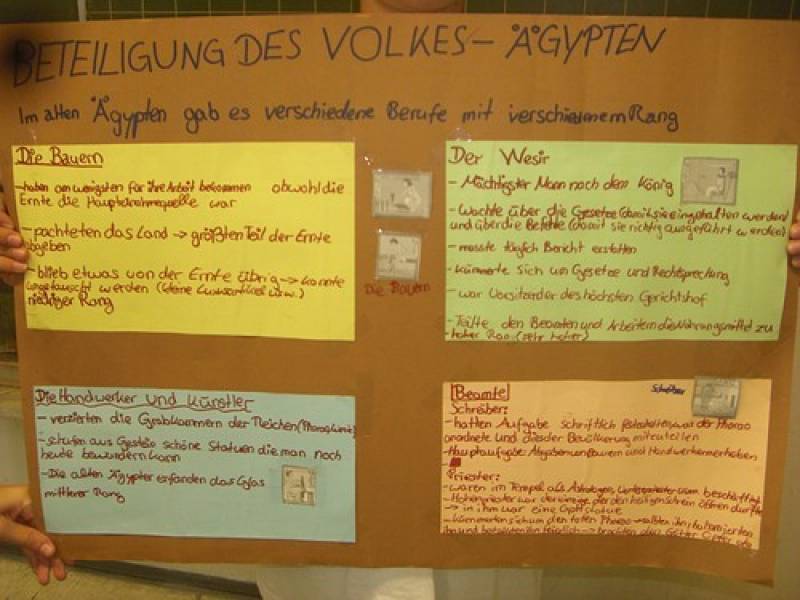 BETEILIGUNG DES VOLKES - ÄGYPTEN
Im alten Ägypten gab es verschiedene Berufe mit verschiedenem Rang
Die Bauern
- haben am wenigsten für ihre Arbeit bekommen obwohl die
Ernte die Haupteinnahmequelle war
- pachteten das Land → größten Teil der Ernte
abgeben
- blieb etwas von der Ernte übrig → konnte
umgetauscht werden (kleine Luxusartikel usw.)
niedriger Rang
Die Bauern
Der Wesir
- Mächtigster Mann nach dem König
- Wachte über die Gesetze (damit sie eingehalten werden)
und über die Befehle (damit sie richtig ausgeführt werden)
- musste täglich Bericht erstatten
- kümmerte sich um Gesetze und Rechtsprechung
- war Vorsitzender des höchsten Gerichtshof
- Teilte den Beamten und Arbeitern die Nahrungsmittel zu
- hoher Rang (sehr hoher)
Die Handwerker und Künstler
- verzierten die Grabkammern der Reichen
- schufen aus Gestein schöne Statuen die man noch
heute bewundern kann
- Die alten Ägypter erfanden das Glas
mittlerer Rang
Beamte
Schreiber
Schreiber:
- hatten Aufgabe schriftlich festzuhalten, was der Pharao
anordnete und dies der Bevölkerung mitzuteilen
- Hauptaufgabe: Abgaben von Bauern und Handwerkern erheben
Priester:
- waren im Tempel als Astrologen, beschäftigt
- Hohepriester war der einzige der den heiligen Schrein öffnen durfte
→ in ihm war eine Gottstatue
- Kümmerten sich um den toten Pharao → salbten ihn, balsamierten
ihn und bestatteten ihn feierlich → brachten den Götter Opfer